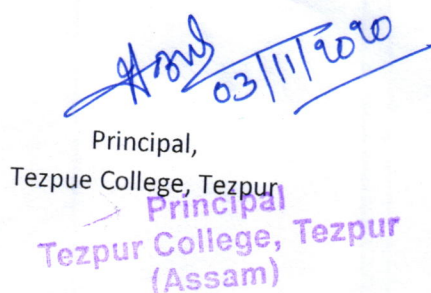 03/11/2020
Principal,
Tezpue College, Tezpur
Principal
Tezpur College, Tezpur
(Assam)